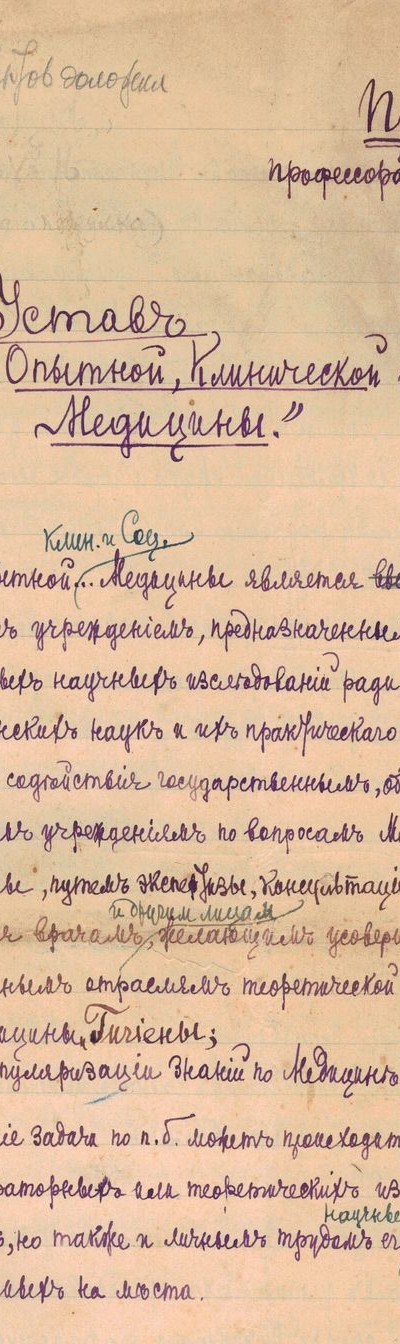 профессора
Уставъ
Опытной, Клинической
Медицины."
Клин. и Соц.
Медицины является
учрежденіемъ, предназначенным
научныхъ изслѣдованій ради
наукъ и ихъ практическаго
содѣйствія государственнымъ, об
учрежденіямъ по вопросамъ М
, путемъ экспертизы, консультаці
и другим лицам
врачамъ, желающимъ усовер
отраслямъ теоретической
Гигіены;
пуляризаціи знаній по Медицинѣ
задачи по п. б. можетъ происходит
или теоретическихъ из
научные
, но также и личнымъ трудомъ ег
на мѣста.